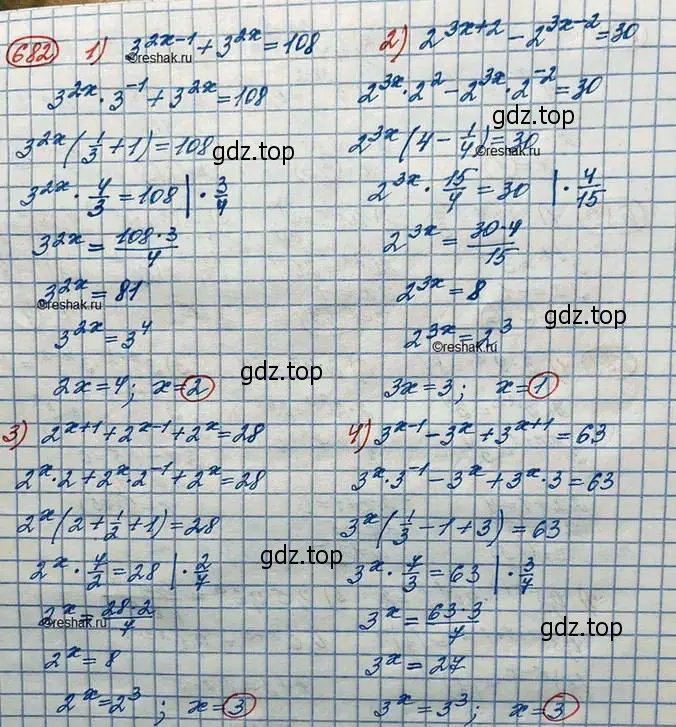 682 1) 3^{2x-1} + 3^{2x} = 108
©reshak.ru
3^{2x} · 3^{-1} + 3^{2x} = 108
3^{2x} (1/3 + 1) = 108
gdz.top
3^{2x} · 4/3 = 108 | · 3/4
3^{2x} = 108·3/4
3^{2x} = 81
©reshak.ru
3^{2x} = 3^4
gdz.top
2x = 4; x = 2
2) 2^{3x+2} - 2^{3x-2} = 30
2^{3x} · 2^2 - 2^{3x} · 2^{-2} = 30
2^{3x} (4 - 1/4) = 30
©reshak.ru
gdz.top
2^{3x} · 15/4 = 30 | · 4/15
2^{3x} = 30·4/15
2^{3x} = 8
gdz.top
2^{3x} = 2^3
©reshak.ru
3x = 3; x = 1
3) 2^{x+1} + 2^{x-1} + 2^x = 28
2^x · 2 + 2^x · 2^{-1} + 2^x = 28
2^x (2 + 1/2 + 1) = 28
gdz.top
2^x · 7/2 = 28 | · 2/7
2^x = 28·2/7
©reshak.ru
2^x = 8
2^x = 2^3; x = 3
4) 3^{x-1} - 3^x + 3^{x+1} = 63
3^x · 3^{-1} - 3^x + 3^x · 3 = 63
3^x (1/3 - 1 + 3) = 63
3^x · 7/3 = 63 | · 3/7
3^x = 63·3/7
gdz.top
3^x = 27
3^x = 3^3; x = 3